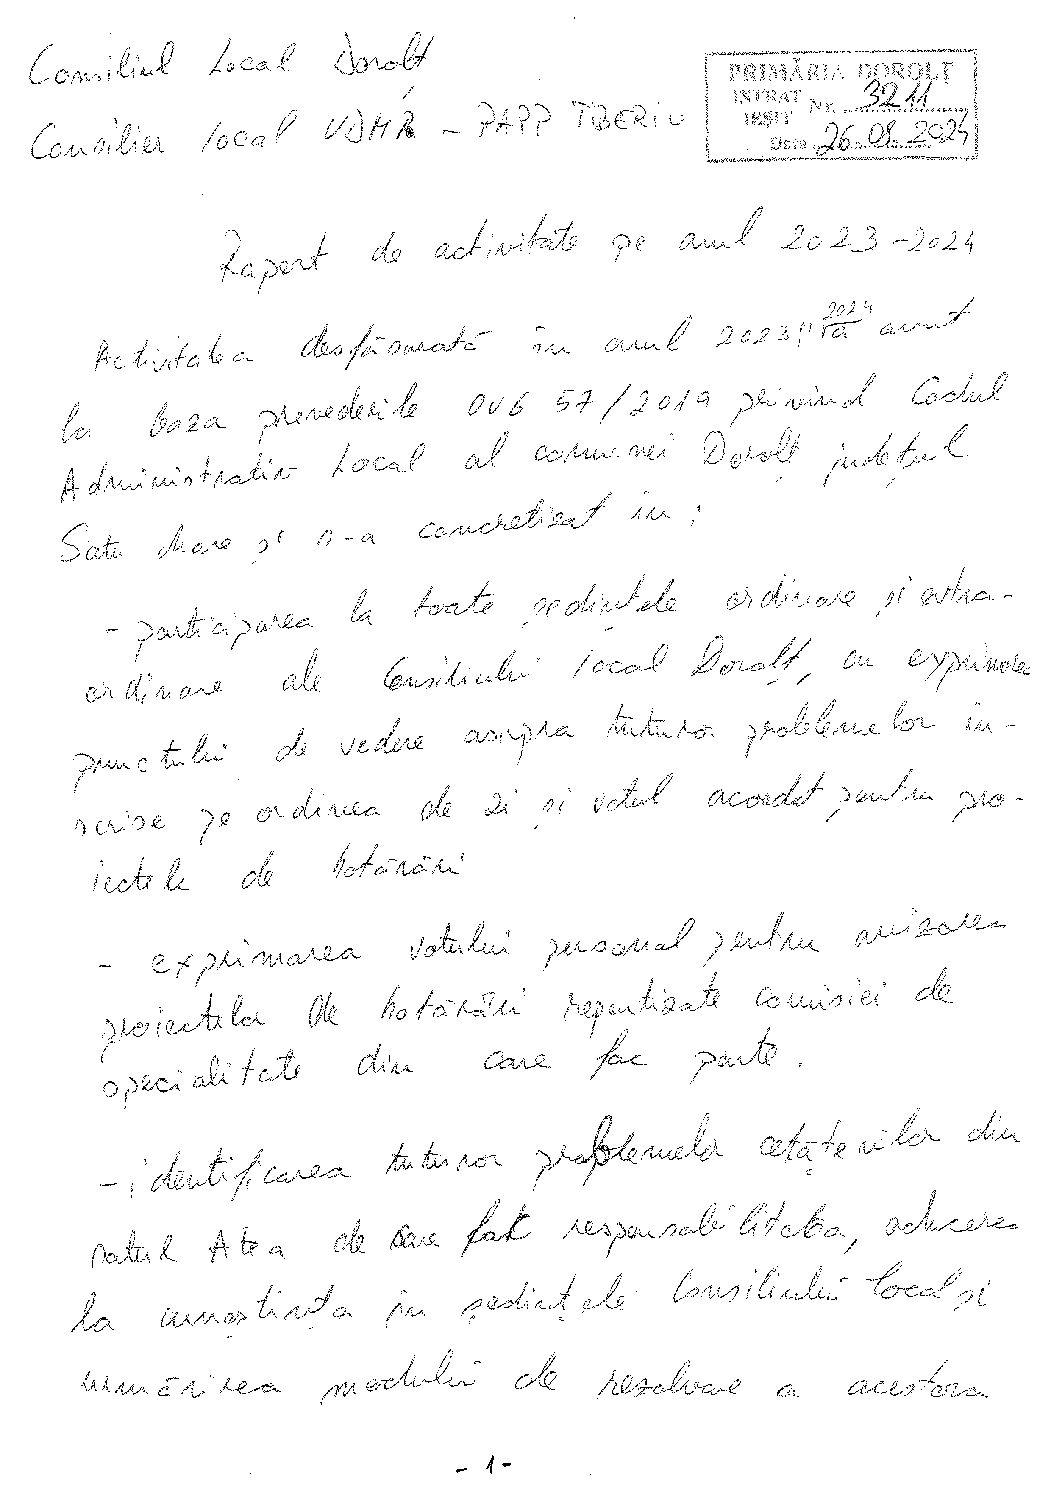 Consiliul Local Dorolț
Consilier local UDMR - PAPP TIBERIU
PRIMĂRIA DOROLȚ
INTRAT
IEȘIT NR. 3211
Data 26.08.2024
Raport de activitate pe anul 2023-2024
Activitatea desfășurată în anul 2023, 2024 a avut
la baza prevederile OUG 57/2019 privind Codul
Administrativ Local al comunei Dorolț județul
Satu Mare și s-a concretizat în:
- participarea la toate ședințele ordinare și extra-
ordinare ale Consiliului local Dorolț, cu exprimarea
punctului de vedere asupra tuturor problemelor în-
scrise pe ordinea de zi și votul acordat pentru pro-
iectele de hotărâri
- exprimarea votului personal pentru avizarea
proiectelor de hotărâri repartizate comisiei de
specialitate din care fac parte.
- identificarea tuturor problemelor cetățenilor din
satul Atea de care fac responsabilitatea, aducerea
la cunoștința în ședințele Consiliului local și
urmărirea modului de rezolvare a acestora
- 1 -